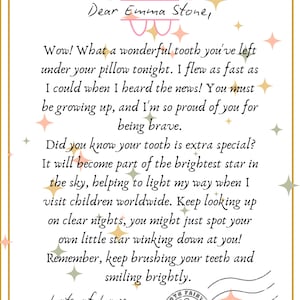 Dear Emma Stone,
Wow! What a wonderful tooth you've left
under your pillow tonight. I flew as fast as
I could when I heard the news! You must
be growing up, and I'm so proud of you for
being brave.
Did you know your tooth is extra special?
It will become part of the brightest star in
the sky, helping to light my way when I
visit children worldwide. Keep looking up
on clear nights, you might just spot your
own little star winking down at you!
Remember, keep brushing your teeth and
smiling brightly.